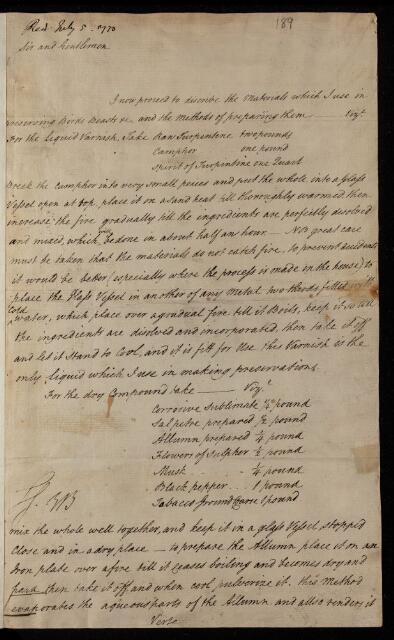 Read July 5. 1770
189
Sir and Gentlemen
I now proceed to describe the Materials which I use in
preserving Birds Beasts &c. and the Methods of preparing them — Vizt.
For the Liquid Varnish, Take Raw Turpentine two pounds
Camphor one pound
Spirit of Turpentine one Quart
Break the Camphor into very small peices and put the whole into a Glass
Vessel open at top. place it on a Sand heat till thoroughly warmed then
increase the fire gradually till the ingredients are perfectly dissolved
and mixed, which be done in about half an hour — NB great care
must be taken that the materials do not catch fire, to prevent accidents
it would be better (especially where the process is made on the house) to
place the Glass Vessel in another of any Metal two thirds filled with
Cold
Water, which place over a gradual fire till it Boils, keep it so till
the ingredients are disolved and incorporated, then take it off
and let it Stand to Cool, and it is fitt for Use this Varnish is the
only liquid which I use in making preservations.
For the dry Compound take — Vizt.
Corrosive Sublimate ¼ pound
Salpetre prepared ½ pound
Allumn prepared ¼ pound
Flowers of Sulpher ½ pound
Musk . . . ¼ pound
Black pepper . . 1 pound
Tobacco ground Coarse 1 pound
mix the whole well together, and keep it in a glass Vessel, stopped
Close and in a dry place — to prepare the Allumn place it on an
Iron plate over a fire till it ceases boiling and becomes dry and
hard then take it off and when cool pulverize it. this method
evaporates the aqueous parts of the Allumn and allso renders it
Verso